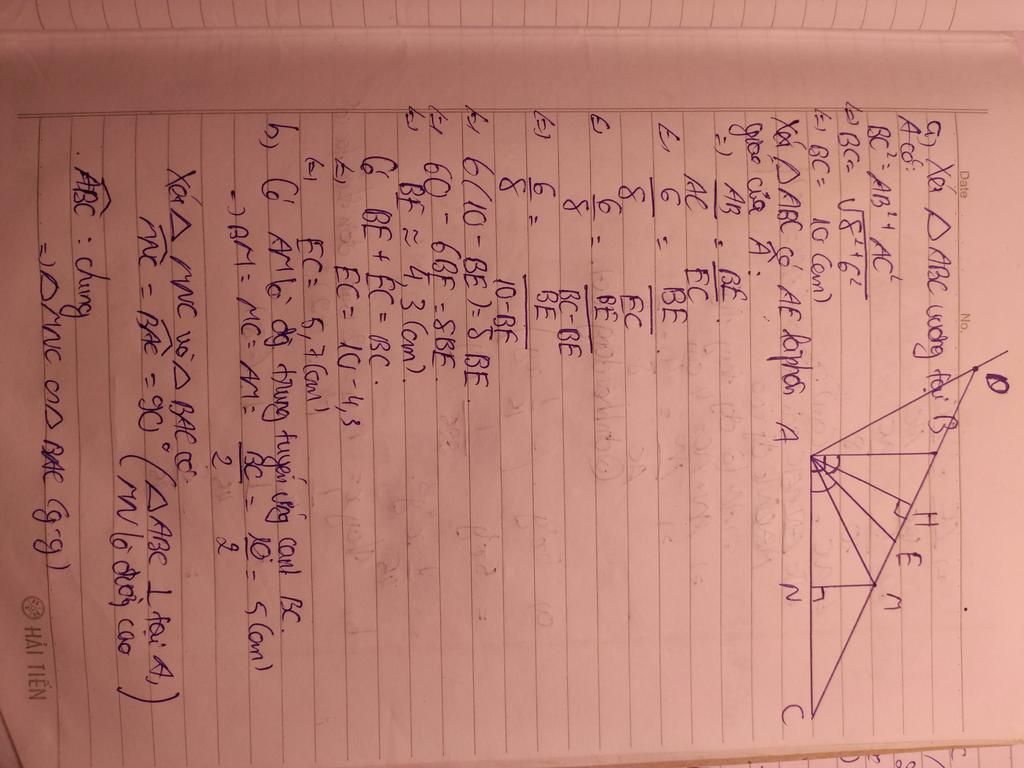 Date
No.
D
B
H
E
M
A
N
C
a) Xét △ ABC vuông tại
A có:
BC² = AB² + AC²
(=) BC = √8² + 6²
(=) BC = 10 (cm)
Xét △ ABC có AE là phân
giác của Â:
=) AB/AC = BE/EC
(=) 6/8 = BE/EC
(=) 6/8 = BE/BC-BE
(=) 6/8 = BE/10-BE
(=) 6(10 - BE) = 8BE
(=) 60 - 6BE = 8BE
(=) BE ≈ 4,3 (cm)
Có BE + EC = BC
(=) EC = 10 - 4,3
(=) EC = 5,7 (cm)
b) Có AM là đg trung tuyến ứng cạnh BC.
=) BM = MC = AM = BC/2 = 10/2 = 5 (cm)
Xét △ MNC và △ BAC có
MNC = BAC = 90° (△ ABC ⊥ tại A,
MN là đường cao)
ABC : chung
=) △ MNC ∽ △ BAC (g-g)
HẢI TIẾN